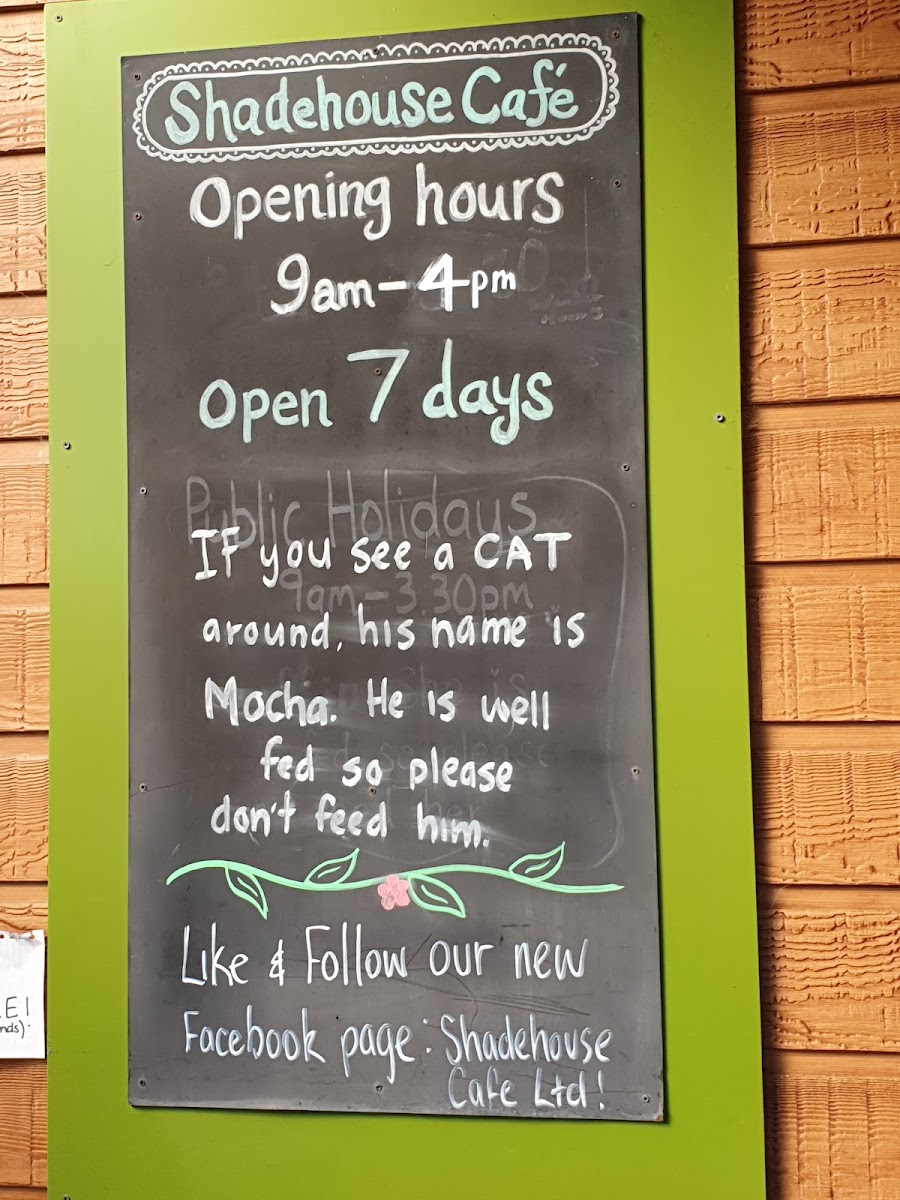 Shadehouse Café
Opening hours
9am - 4pm
Open 7 days
Public Holidays
If you see a CAT
9am - 3.30pm
around, his name is
Mocha. He is well
fed so please
don't feed him.
Like & Follow our new
Facebook page: Shadehouse
Cafe Ltd!
E!
nds).